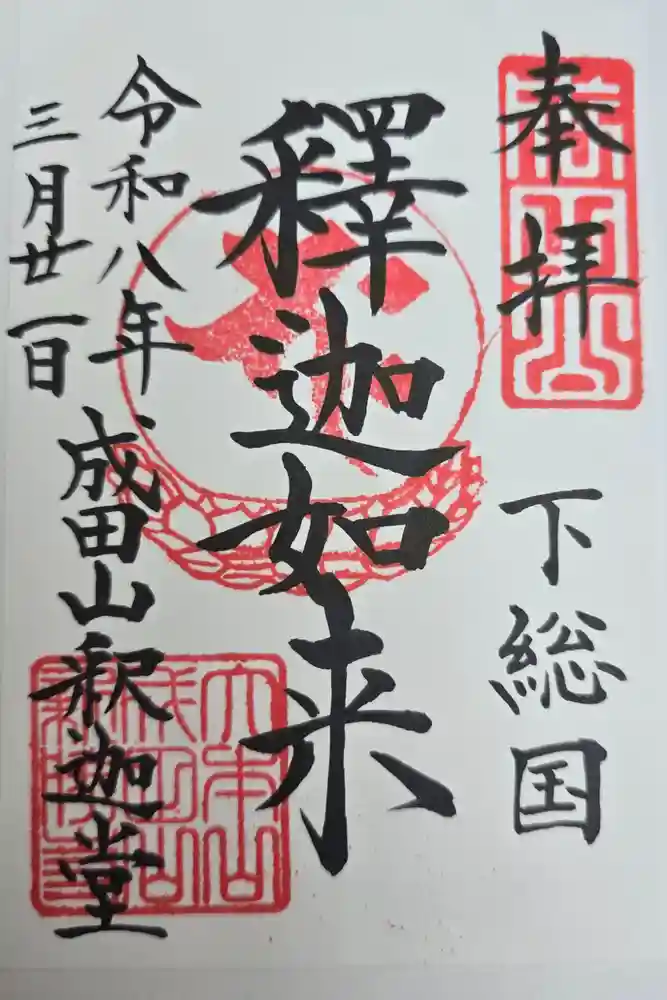 奉拝
下総国
釋迦如来
令和八年
三月廿一日
成田山釈迦堂